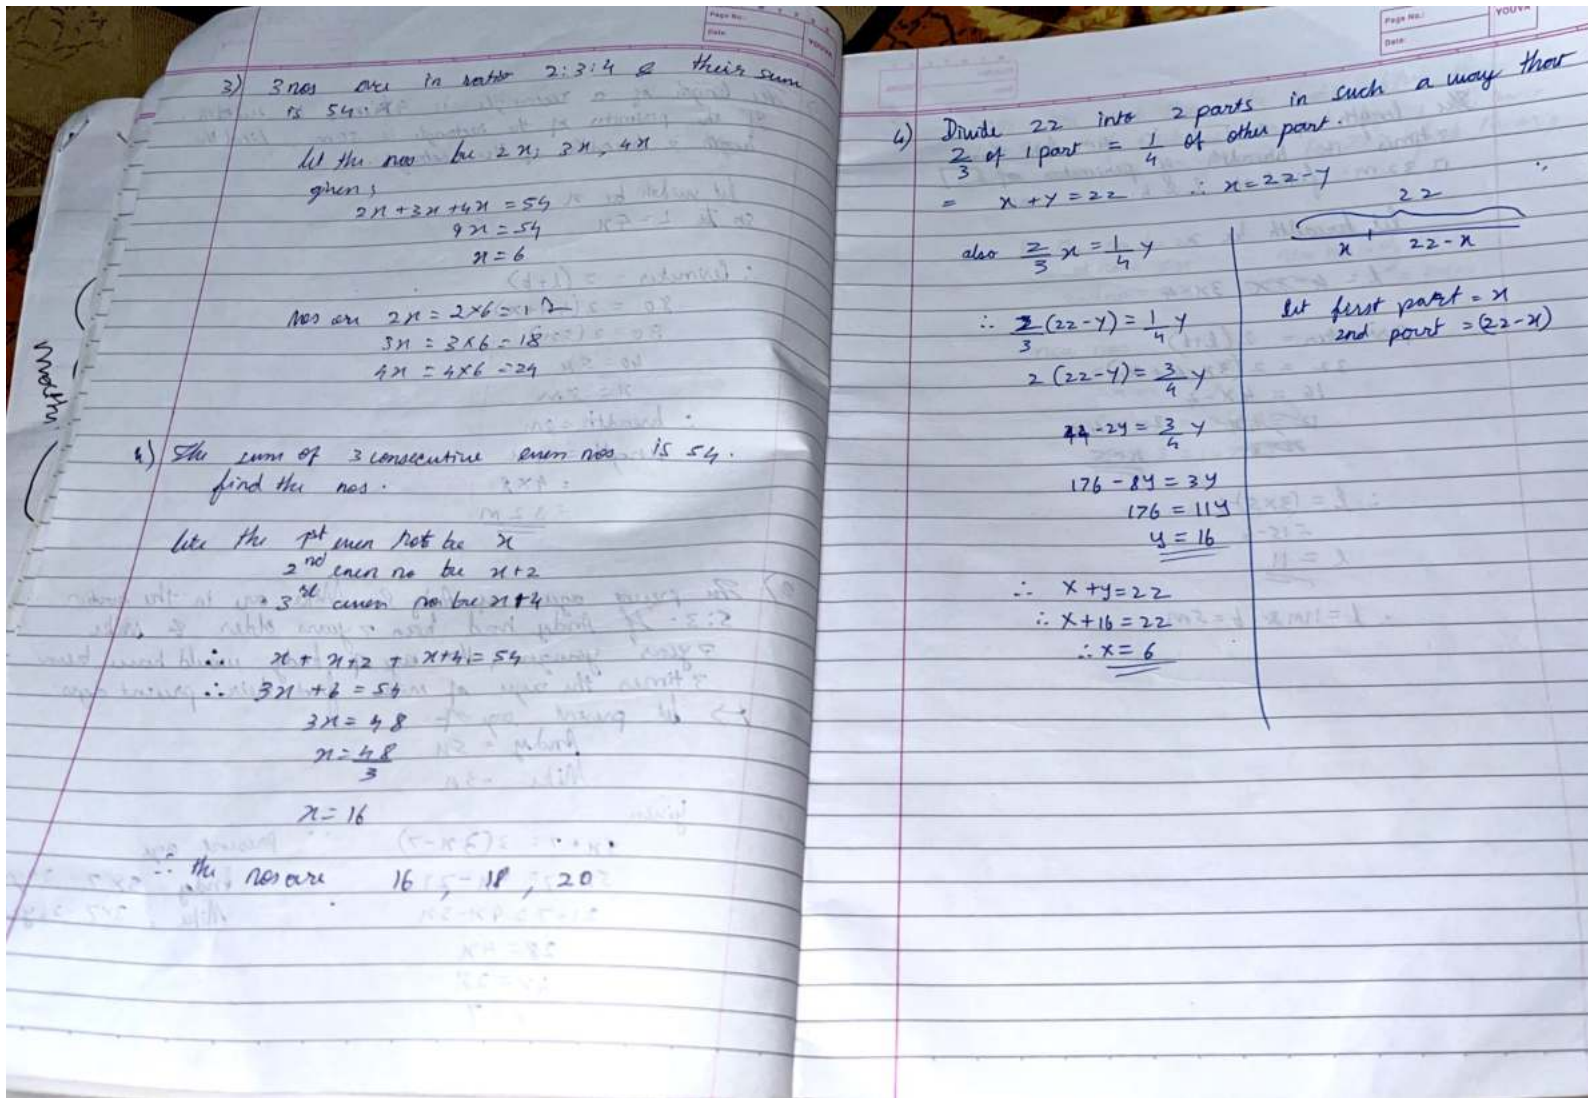 Page No.:
Date:
YOUVA
3) 3 nos are in ratio 2:3:4 & their sum
is 54.
let the nos be 2x, 3x, 4x
given,
2x + 3x + 4x = 54
9x = 54
x = 6
Nos are 2x = 2×6 = 12
3x = 3×6 = 18
4x = 4×6 = 24
4) The sum of 3 consecutive even nos is 54.
find the nos.
let the 1st even be x
2nd even no be x+2
3rd even no be x+4
∴ x + x+2 + x+4 = 54
∴ 3x + 6 = 54
3x = 48
x = 48/3
x = 16
∴ the nos are 16, 18, 20
Page No.:
Date:
YOUVA
4) Divide 22 into 2 parts in such a way that
2/3 of 1 part = 1/4 of other part.
= x + y = 22 ∴ x = 22 - y
also 2/3 x = 1/4 y
∴ 2/3 (22 - y) = 1/4 y
2 (22 - y) = 3/4 y
44 - 2y = 3/4 y
176 - 8y = 3y
176 = 11y
y = 16
∴ x + y = 22
∴ x + 16 = 22
∴ x = 6
22
x 22 - x
let first part = x
2nd part = (22 - x)
Maths